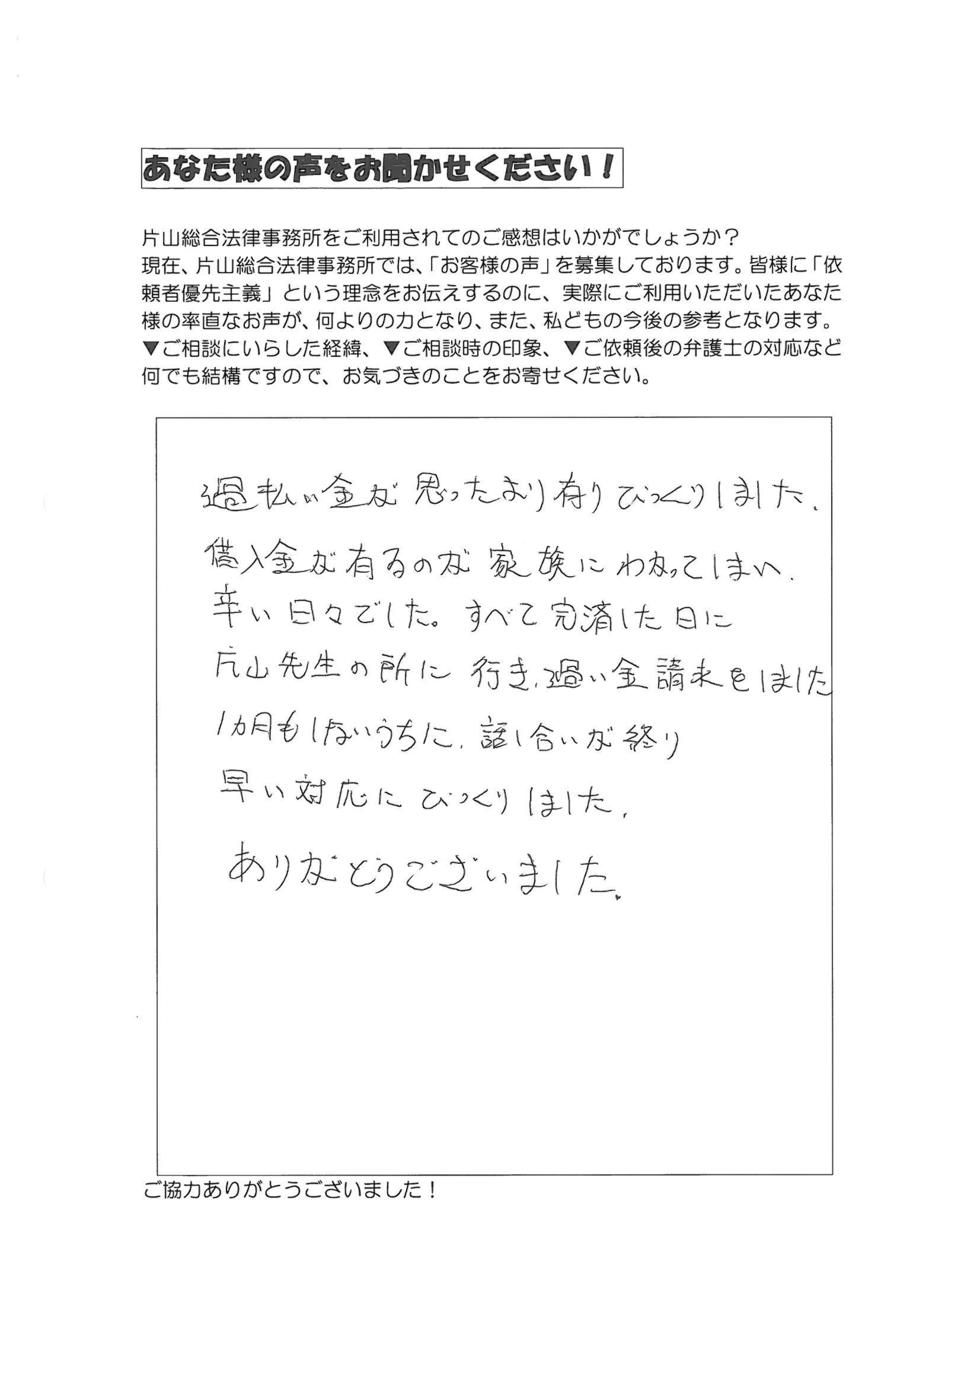 あなた様の声をお聞かせください！
片山総合法律事務所をご利用されてのご感想はいかがでしょうか？
現在、片山総合法律事務所では、「お客様の声」を募集しております。皆様に「依
頼者優先主義」という理念をお伝えするのに、実際にご利用いただいたあなた
様の率直なお声が、何よりの力となり、また、私どもの今後の参考となります。
▼ご相談にいらした経緯、▼ご相談時の印象、▼ご依頼後の弁護士の対応など
何でも結構ですので、お気づきのことをお寄せください。
過払い金が思ったより有りびっくりしました。
借入金が有るのが家族にわかってしまい、
辛い日々でした。すべて完済した日に
片山先生の所に行き、過い金請求をしました
1カ月もしないうちに、話し合いが終り
早い対応にびっくりしました。
ありがとうございました。
ご協力ありがとうございました！